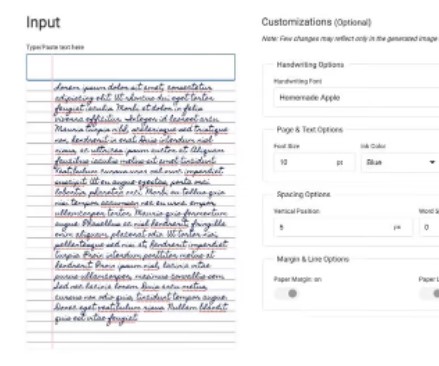 Input
Type/Paste text here
Lorem ipsum dolor sit amet, consectetur
adipiscing elit. Ut rhoncus dui eget tortor
feugiat iaculis. Morbi et dolor in felis
viverra efficitur. Integer id laoreet arcu.
Mauris turpis nisl, scelerisque sed tristique
non, hendrerit in erat. Duis interdum nisl
risus, ac ultrices ipsum auctor at. Aliquam
faucibus iaculis metus sit amet tincidunt.
Vestibulum cursus urna vel nunc imperdiet
suscipit. Ut eu augue egestas, porta
lobortis, pharetra orci. Morbi eu tellus quis
nisi tempor accumsan nec eu
ullamcorper tortor. Mauris quis fermentum
augue. Phasellus ac nisl hendrerit, fringilla
enim aliquam, placerat odio. Ut tortor nisi,
pellentesque sed nisi at, hendrerit imperdiet
turpis. Proin interdum porttitor metus at
hendrerit. Proin ipsum nisl, lacinia vitae
purus ullamcorper, maximus convallis sem.
Sed nec lacinia lorem. Duis arcu metus,
cursus non odio quis, tincidunt tempor augue.
Donec eget vestibulum risus. Nullam blandit
quis est vitae feugiat.
Customizations (Optional)
Note: Few changes may reflect only in the generated image
Handwriting Options
Handwriting Font
Homemade Apple
Page & Text Options
Font Size
Ink Color
10 pt
Blue
Spacing Options
Vertical Position
Word S
5 px
0
Margin & Line Options
Paper Margin: on
Paper L